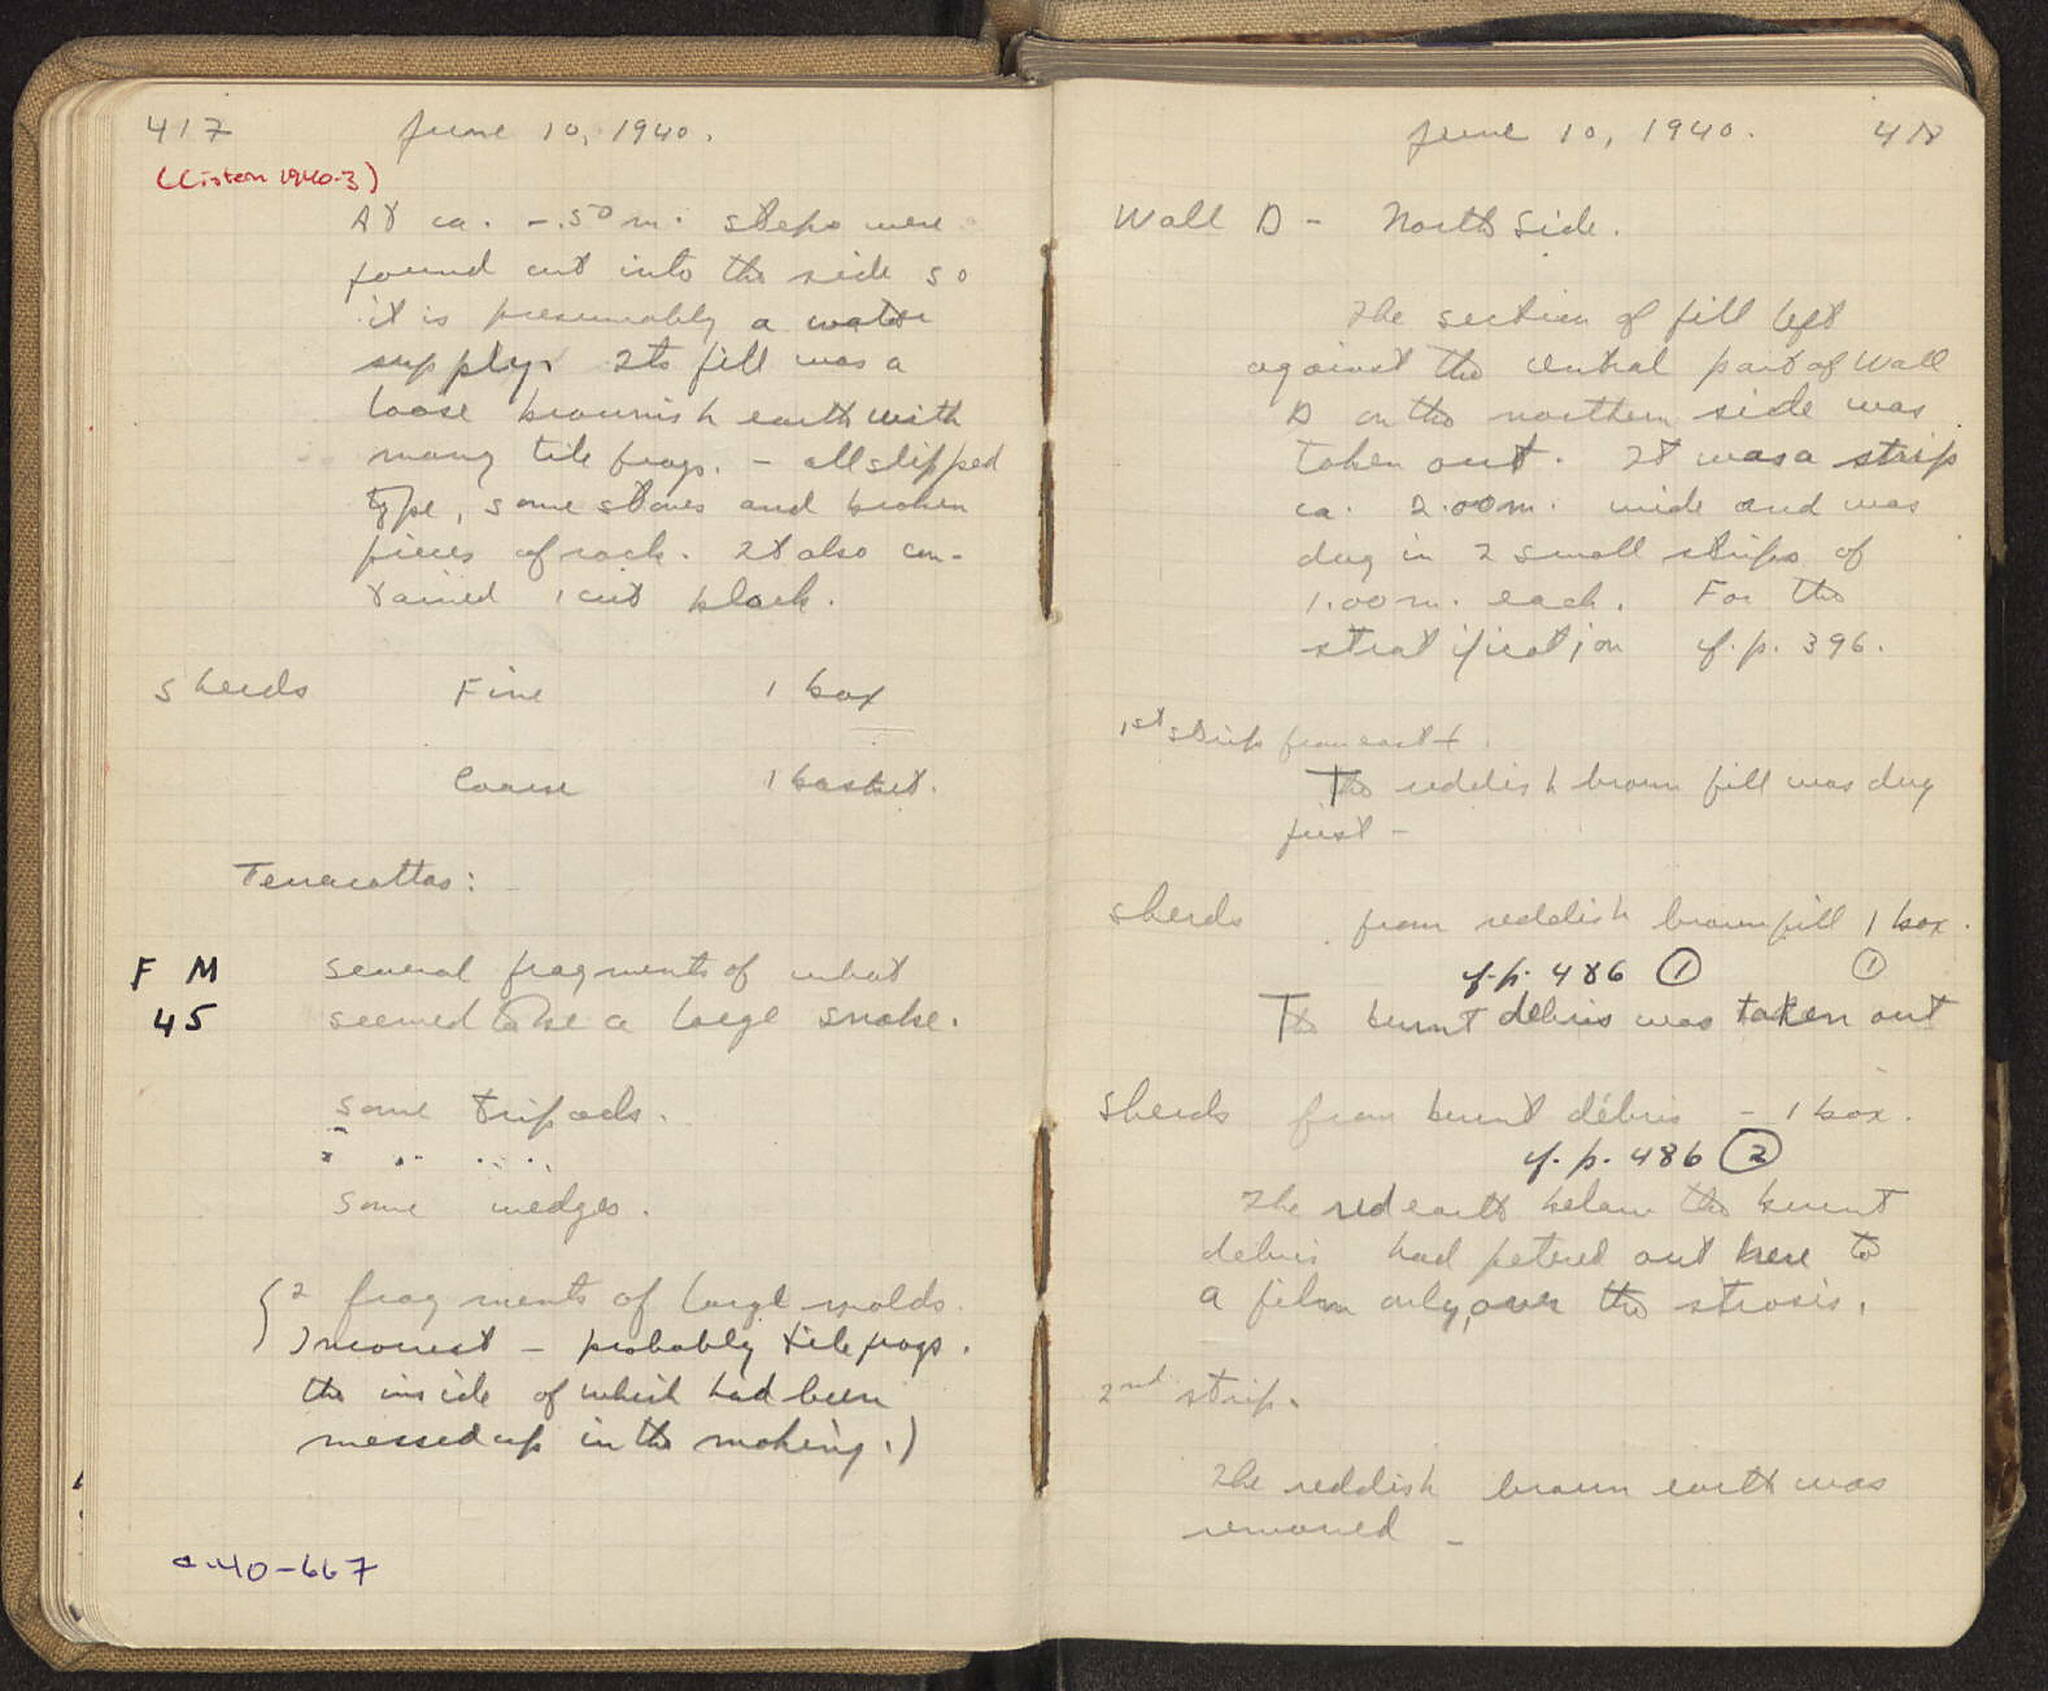 417 June 10, 1940.
(Cistern 1940-3)
At ca. -.50 m. steps were
found cut into the side so
it is presumably a water
supply. Its fill was a
loose brownish earth with
many tile frags. - all slipped
type, some stones and broken
pieces of rock. It also con-
tained 1 cut block.
Sherds Fine 1 box
Coarse 1 basket.
Terracottas:
F M several fragments of what
45 seemed to be a large snake.
Some tripods.
Some wedges.
(2 fragments of large molds.
Incorrect - probably tile frags.
the inside of which had been
messed up in the making.)
C-40-667
June 10, 1940. 418
Wall D - North Side.
The section of fill left
against the central part of Wall
D on the northern side was
taken out. It was a strip
ca. 2.00 m. wide and was
dug in 2 small strips of
1.00 m. each. For the
stratification cf. p. 396.
1st strip from east
The reddish brown fill was dug
first -
Sherds from reddish brown fill 1 box.
cf. p. 486 ① ①
The burnt debris was taken out
Sherds from burnt débris - 1 box.
cf. p. 486 ②
The red earth below the burnt
debris had petered out here to
a film only, over the strosis.
2nd strip.
The reddish brown earth was
removed -